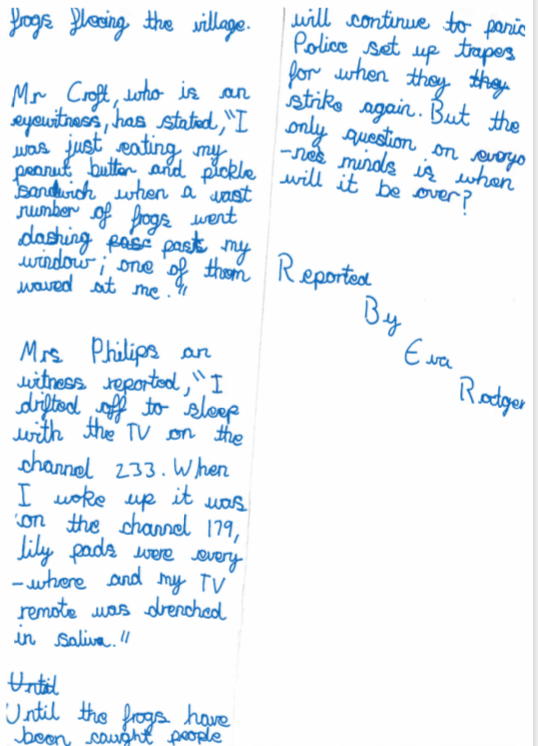 frogs fleeing the village.
Mr Croft, who is an
eyewitness, has stated, "I
was just eating my
peanut butter and pickle
sandwich when a vast
number of frogs went
dashing pass past my
window; one of them
waved at me."
Mrs Philips an
witness reported, "I
drifted off to sleep
with the TV on the
channel 233. When
I woke up it was
on the channel 179,
lily pads were every
-where and my TV
remote was drenched
in saliva."
Until
Until the frogs have
been caught people
will continue to panic
Police set up trapes
for when they they
strike again. But the
only question on everyo
-nes minds is when
will it be over?
Reported
By
Eva
Rodger